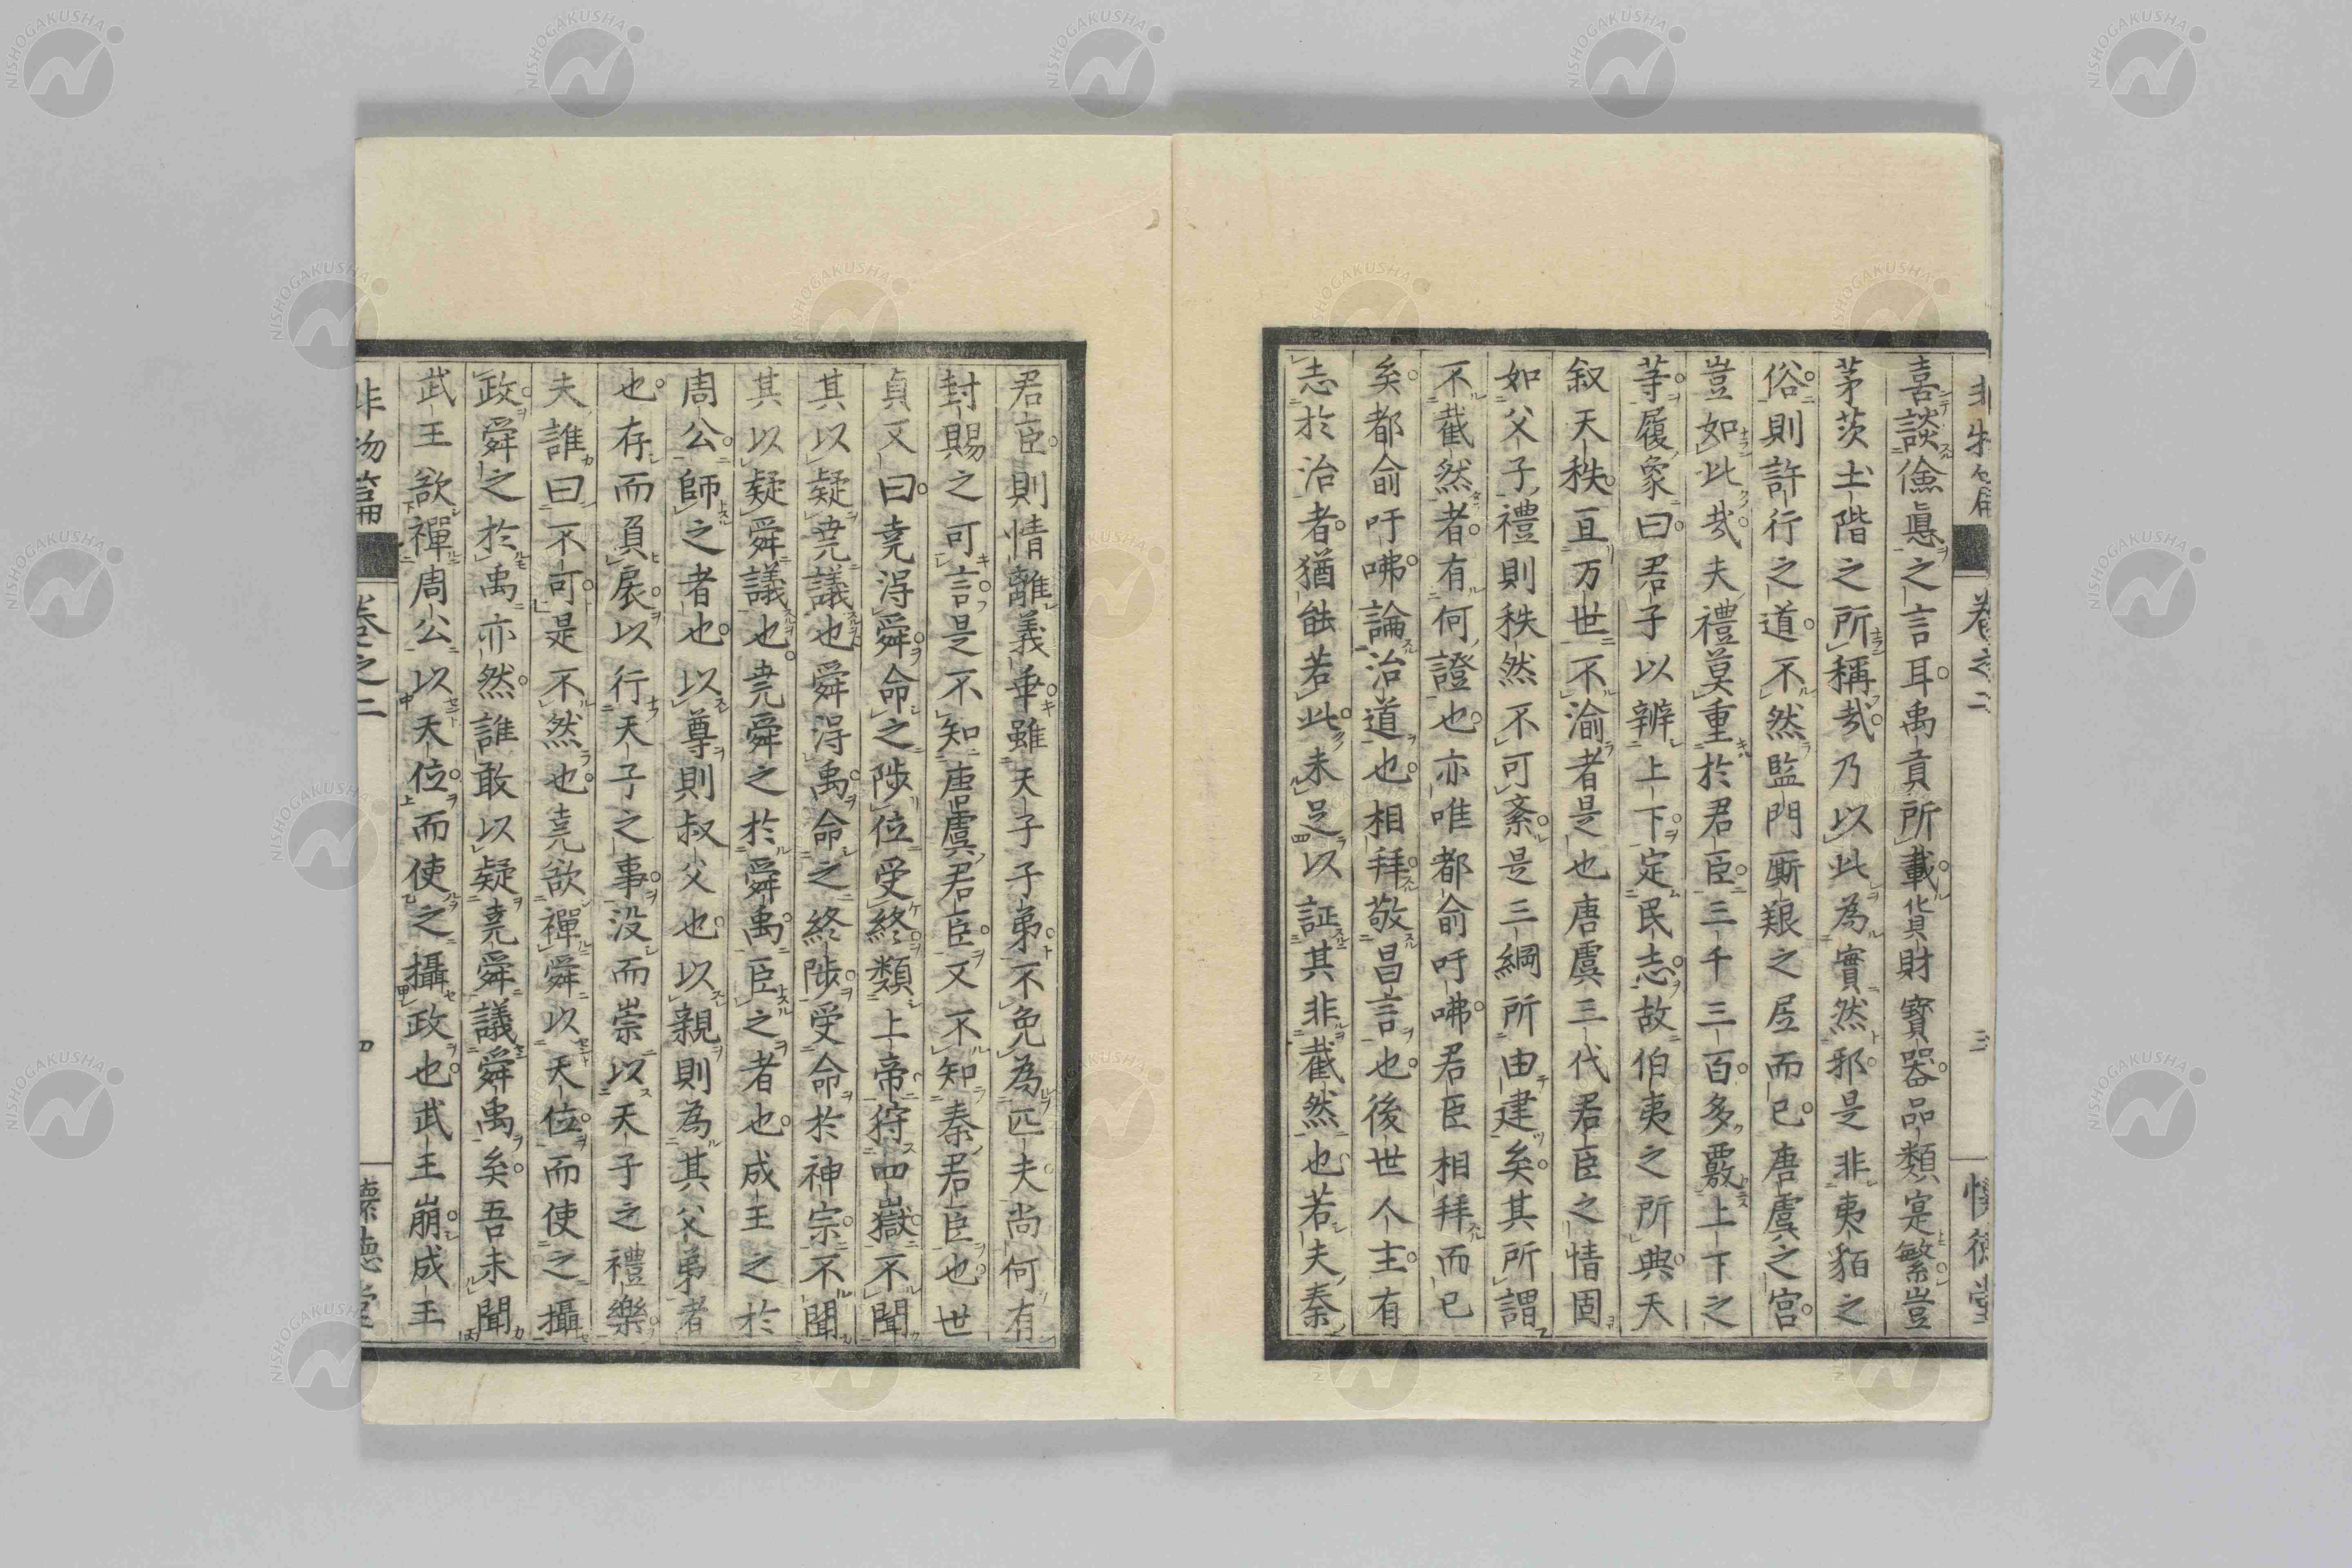 喜談儉悳之言耳禹貢所載貨財寶器品類寔繁豈
茅茨土階之所稱哉乃以此為實然邪是非夷貊之
俗則許行之道不然監門廝艱之居而已唐虞之宮
豈如此哉夫禮莫重於君臣三千三百多覈上下之
等履象曰君子以辨上下定民志故伯夷之所典天
叙天秩亘万世不渝者是也唐虞三代君臣之情固
如父子禮則秩然不可紊是三綱所由建矣其所謂
不截然者有何證也亦唯都俞吁咈君臣相拜而已
矣都俞吁咈論治道也相拜敬昌言也後世人主有
志於治者猶能若此未足以証其非截然也若夫秦
君臣則情離義乖雖天子子弟不免為匹夫尚何有
封賜之可言是不知唐虞君臣又不知秦君臣也世
貞又曰堯得舜命之陟位受終類上帝狩四嶽不聞
其以疑堯議也舜得禹命之終陟受命於神宗不聞
其以疑舜議也堯舜之於舜禹臣之者也成王之於
周公師之者也以尊則叔父也以親則為其父弟者
也存而負扆以行天子之事没而崇以天子之禮樂
夫誰曰不可是不然也堯欲禪舜以天位而使之攝
政舜之於禹亦然誰敢以疑堯舜議舜禹矣吾未聞
武王欲禪周公以天位而使之攝政也武王崩成王
非物篇 卷之二 四 懷德堂